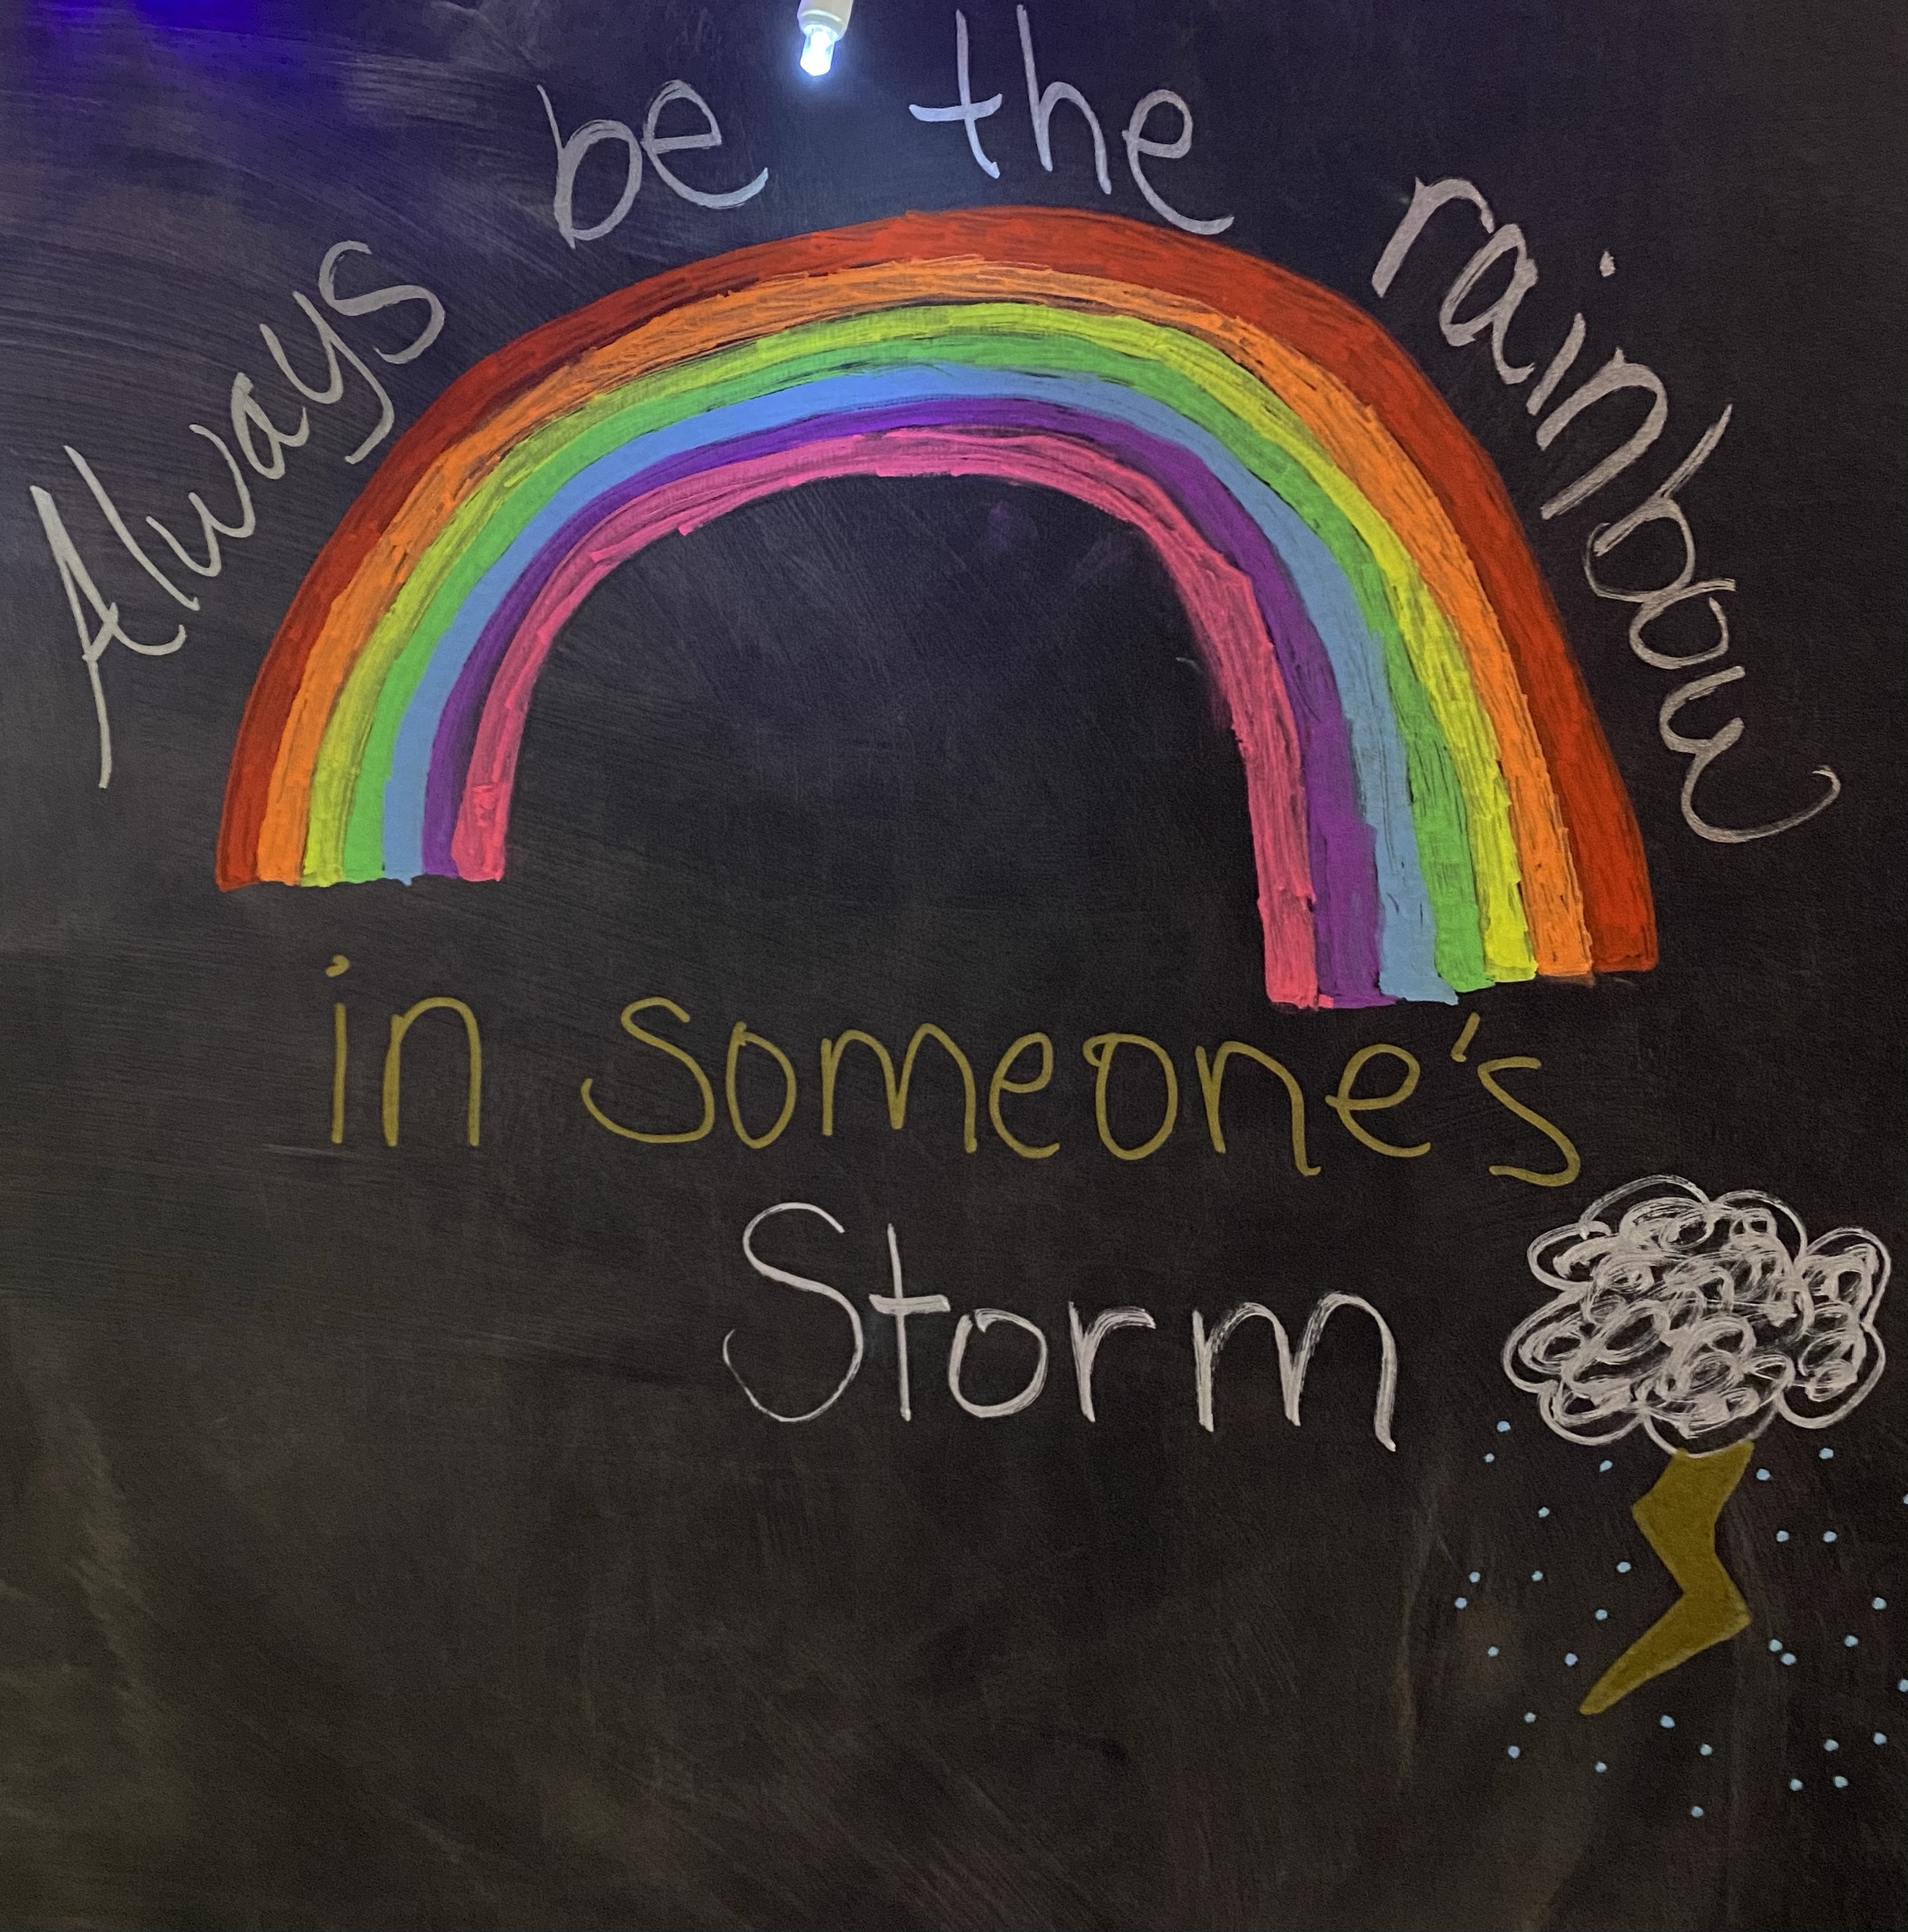 Always be the rainbow
in someone's
Storm